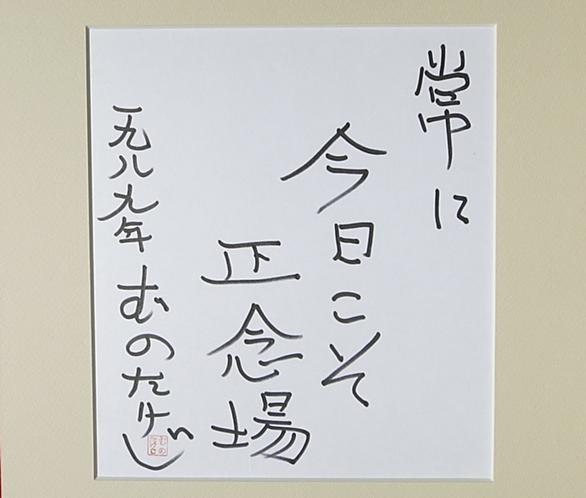 常に
今日こそ
正念場
一九八九年 むのたけじ